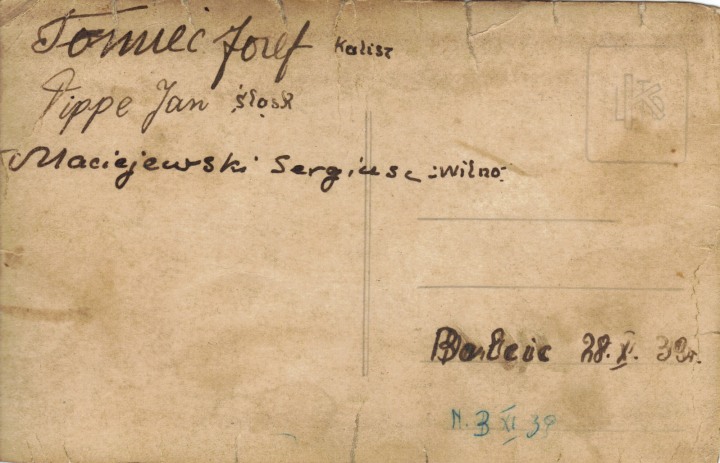 Tomiec Josef Kalisz
Pippe Jan Śląsk
Maciejewski Sergiusz -Wilno-
28.X.39r.
N. 3 XI 39